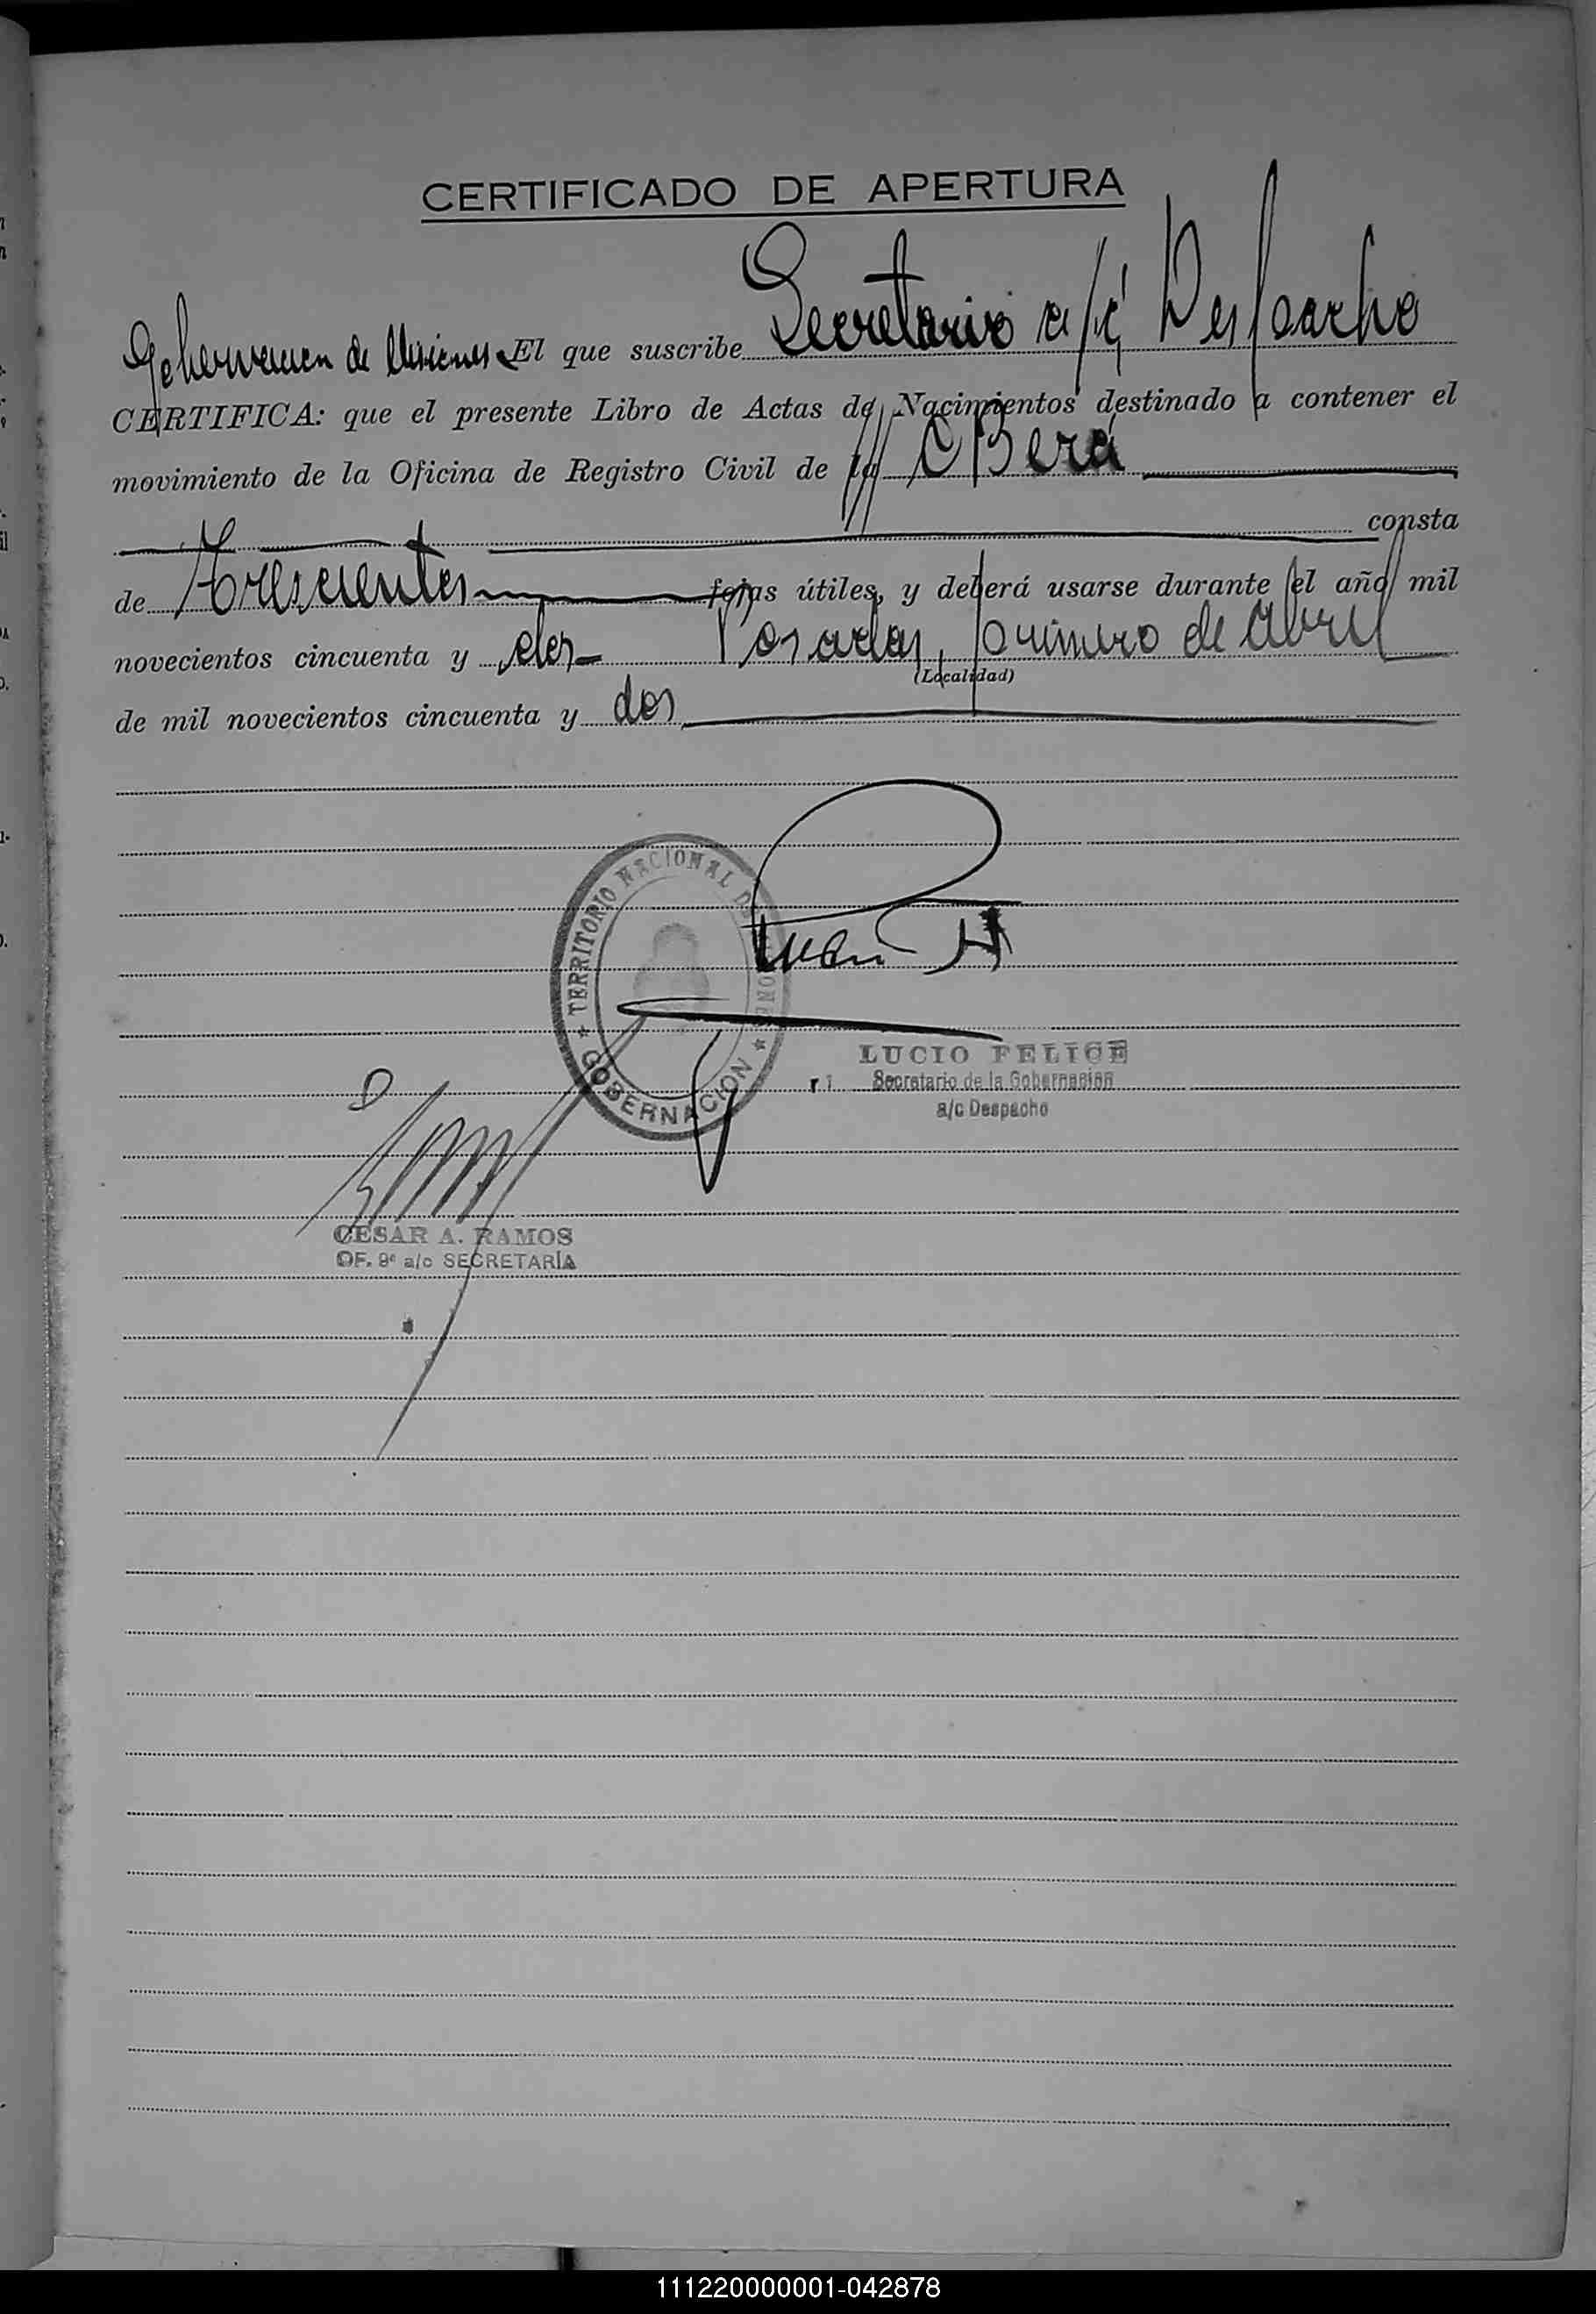 CERTIFICADO DE APERTURA
Gobernacion de Misiones El que suscribe Secretario a/c Despacho
CERTIFICA: que el presente Libro de Actas de Nacimientos destinado a contener el
movimiento de la Oficina de Registro Civil de la OBerá
consta
de Trescientos fojas útiles, y deberá usarse durante el año mil
novecientos cincuenta y dos Posadas, primero de abril
(Localidad)
de mil novecientos cincuenta y dos
TERRITORIO NACIONAL DE MISIONES
GOBERNACION
LUCIO FELICE
Secretario de la Gobernación
a/c Despacho
CESAR A. RAMOS
OF. 9º a/c SECRETARÍA
111220000001-042878